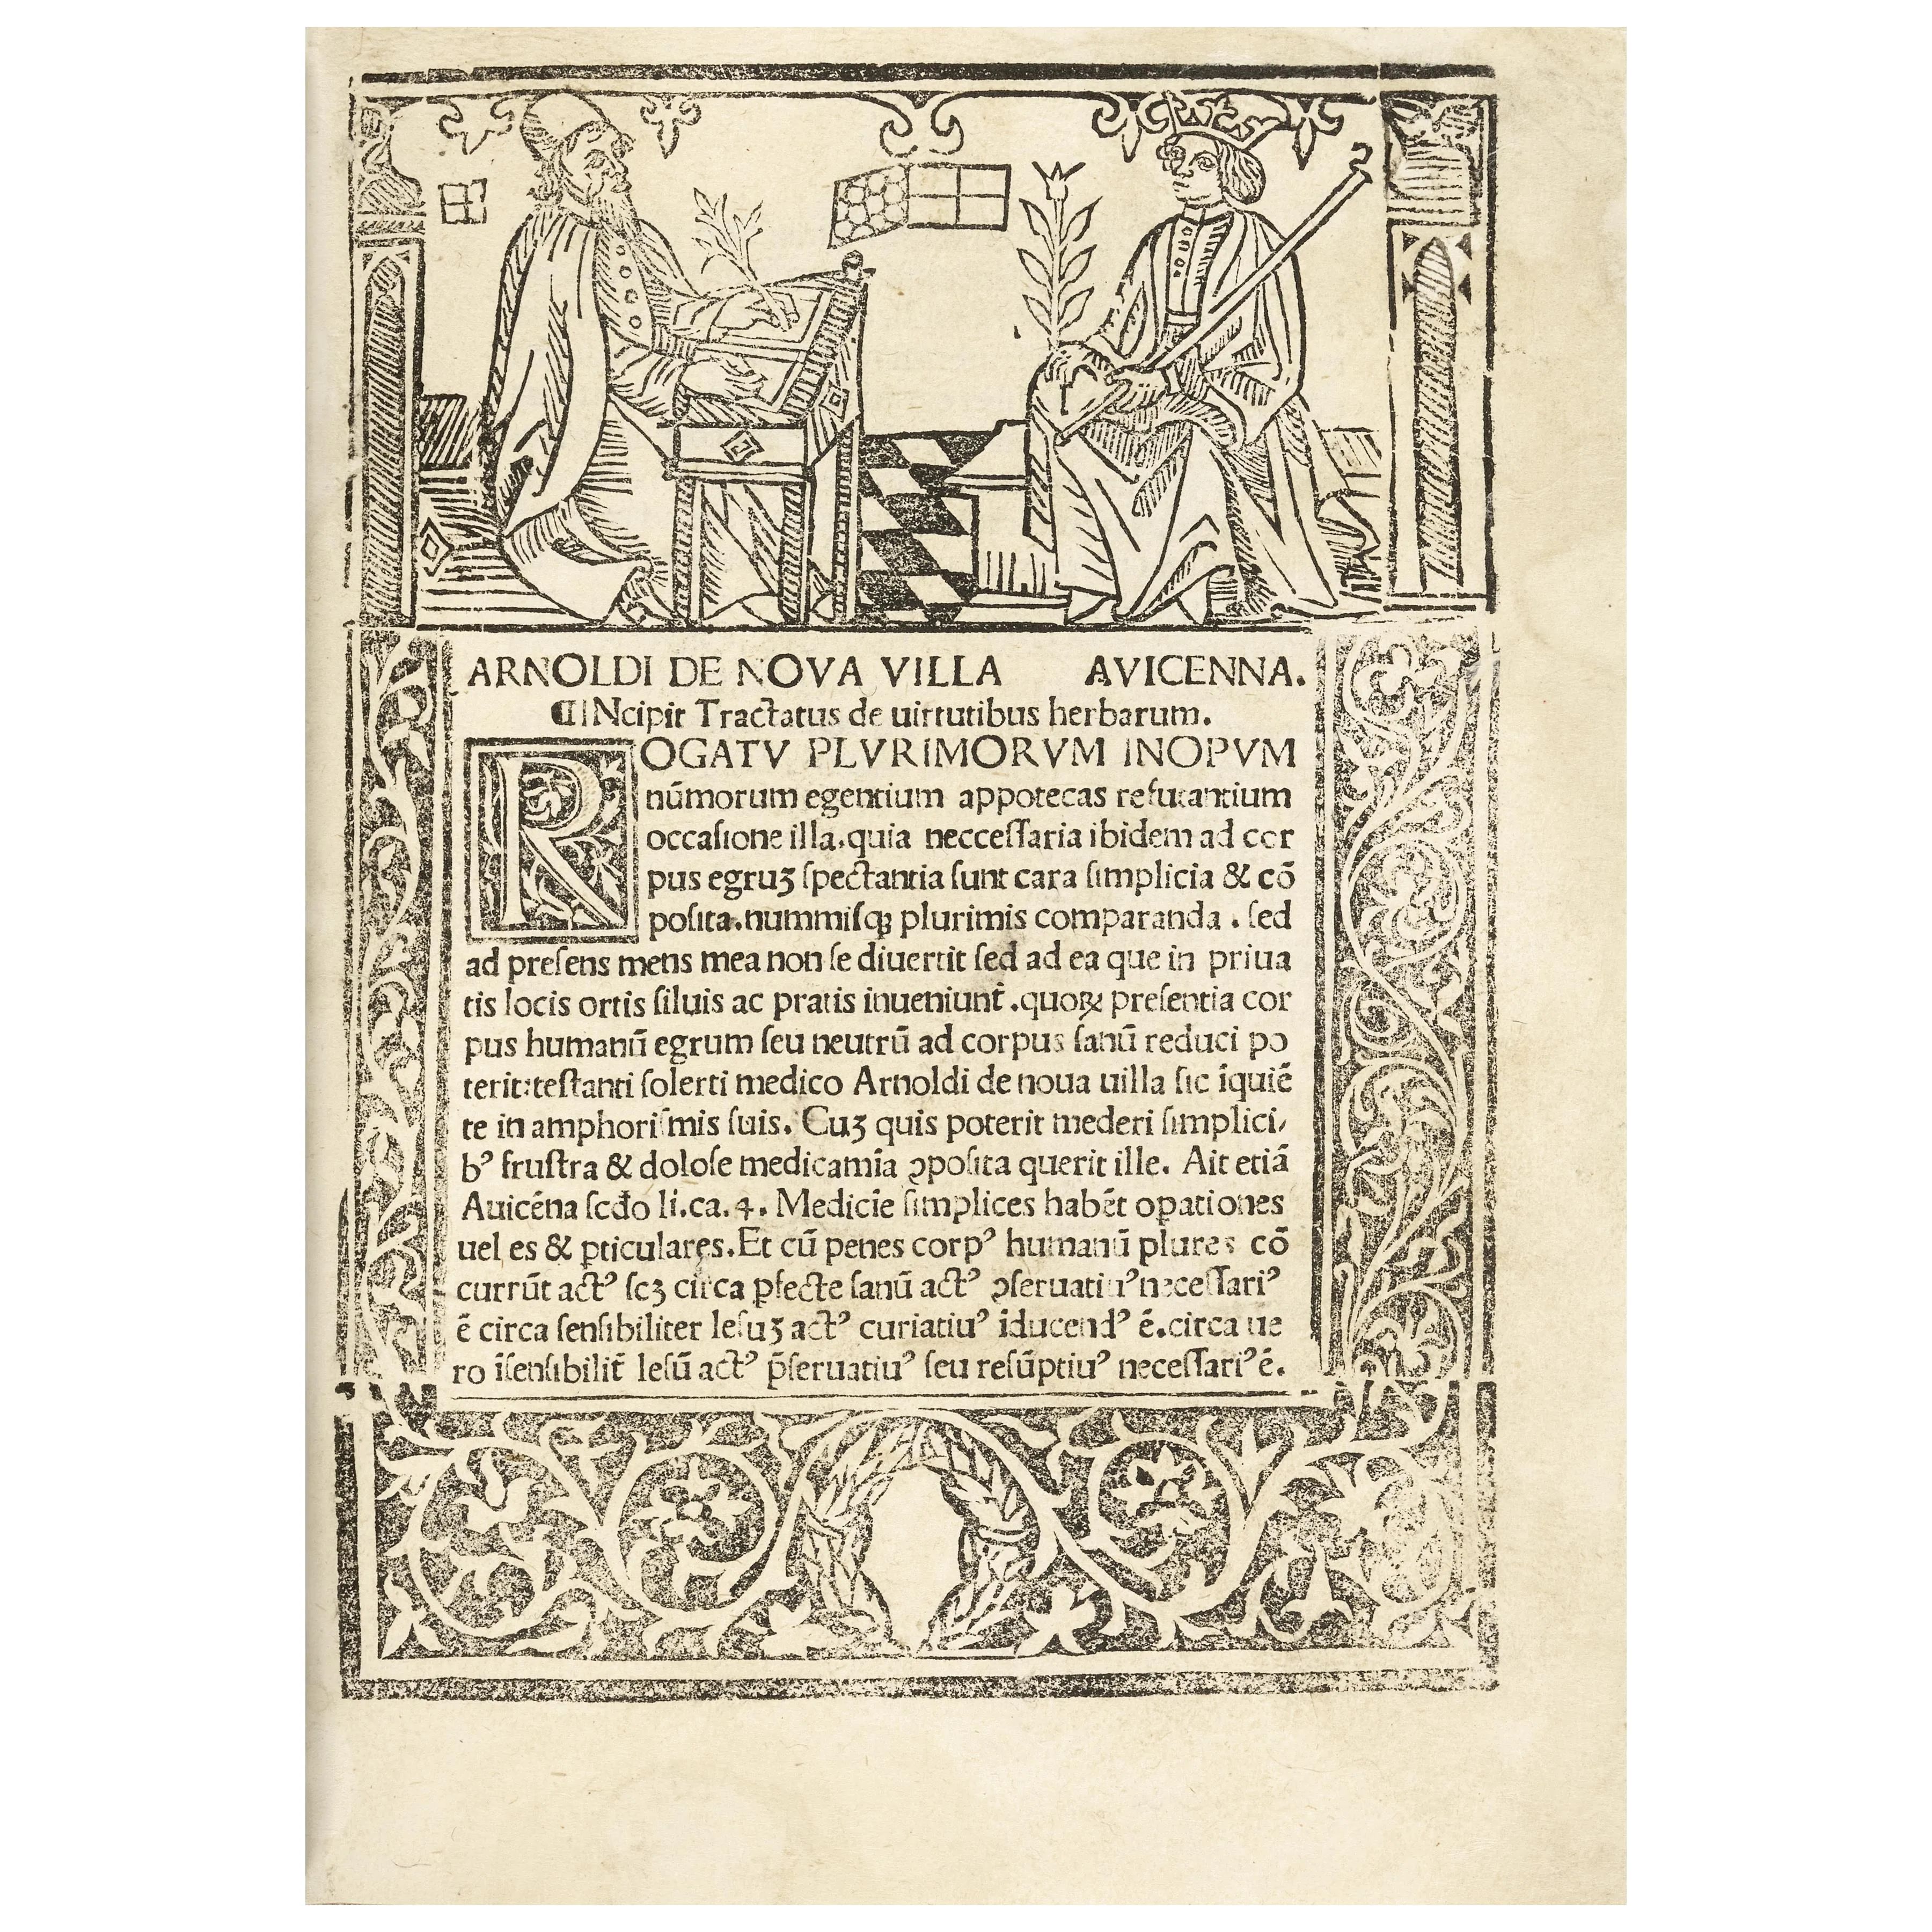 ARNOLDI DE NOVA VILLA AVICENNA.
⸿INcipit Tractatus de uirtutibus herbarum.
ROGATV PLVRIMORVM INOPVM
nūmorum egentium appotecas refutantium
occaſione illa.quia necceſſaria ibidem ad cor
pus egruꝫ ſpectantia ſunt cara ſimplicia & cō
poſita.nummiſqꝫ plurimis comparanda . ſed
ad preſens mens mea non ſe diuertit ſed ad ea que in priua
tis locis ortis ſiluis ac pratis inueniunt̄ .quoꝝ preſentia cor
pus humanū egrum ſeu neutrū ad corpus ſanū reduci po
terit:teſtanti ſolerti medico Arnoldi de noua uilla ſic īquiē
te in amphoriſmis ſuis. Cuꝫ quis poterit mederi ſimplici/
bꝰ fruſtra & doloſe medicamīa ꝯpoſita querit ille. Ait etiā
Auicēna ſcd̄o li.ca.4. Medicīe ſimplices habēt oꝑationes
uel es & ꝑticulares.Et cū penes corpꝰ humanū plures cō
currūt actꝰ ſcꝫ circa ꝑfecte ſanū actꝰ ꝯſeruatiuꝰ neceſſariꝰ
ē circa ſenſibiliter leſuꝫ actꝰ curiatiuꝰ īducendꝰ ē.circa ue
ro īſenſibilit̄ leſū actꝰ p̄ſeruatiuꝰ ſeu reſūptiuꝰ neceſſariꝰ ē.